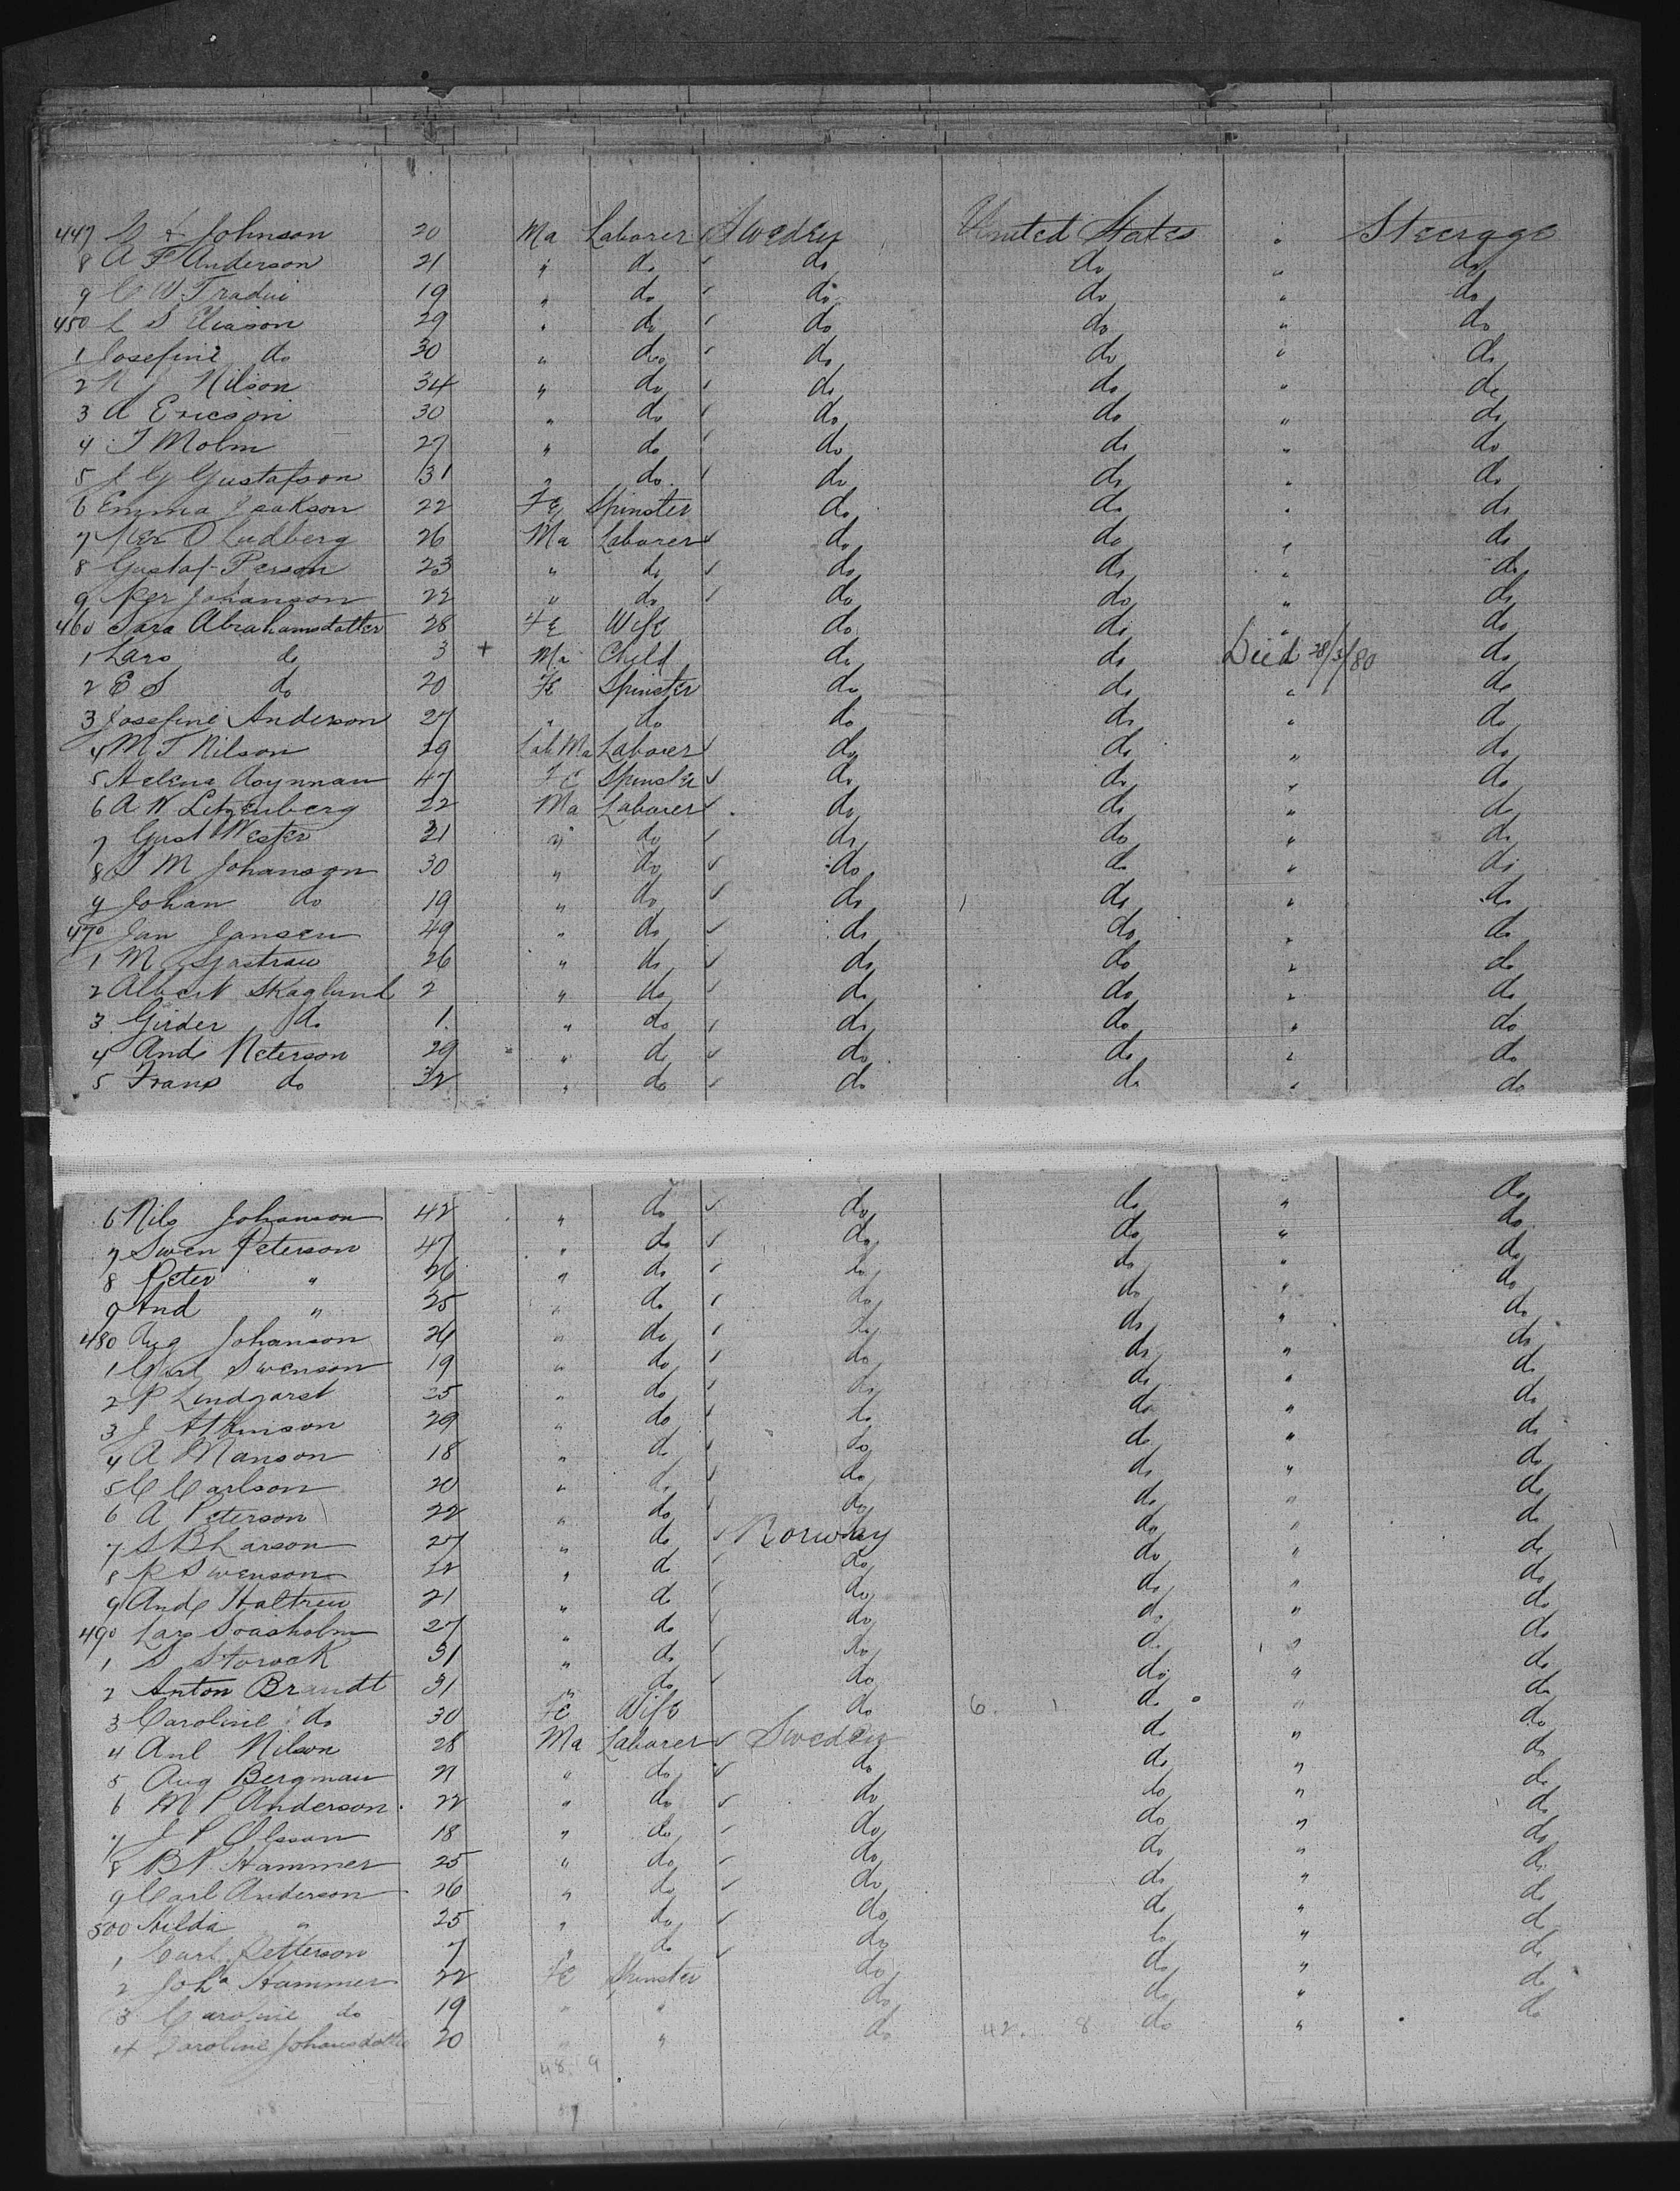 447 Johnson 20 Ma Laborer Sweden United States " Steerage
8 A F Anderson 21 " do do do " do
9 C W Tradui 19 " do do do " do
450 L S Eliason 29 " do do do " do
1 Josefine do 30 " do do do " do
2 N J Nilson 34 " do do do " do
3 A Ericson 30 " do do do " do
4 T Molm 27 " do do do " do
5 J G Gustafson 31 " do do do " do
6 Emma Isakson 22 Fe Spinster do do " do
7 Per O Ludberg 26 Ma Laborer do do " do
8 Gustaf Person 23 " do do do " do
9 Per Johanson 22 " do do do " do
460 Sara Abrahamsdatter 28 Fe Wife do do " do
1 Lars do 3 + Ma Child do do Died 28/3/80 do
2 E S do 20 Fe Spinster do do " do
3 Josefine Anderson 27 " do do do " do
4 M T Nilson 29 Ma Laborer do do " do
5 Helena 47 Fe Spinster do do " do
6 A W Litzenberg 22 Ma Laborer do do " do
7 Gust Wester 21 " do do do " do
8 S M Johanson 30 " do do do " do
9 Johan do 19 " do do do " do
470 Jan Jansen 49 " do do do " do
1 M 26 " do do do " do
2 Albert Skaglund 2 " do do do " do
3 Girder do 1 " do do do " do
4 And Peterson 29 " do do do " do
5 Frans do 32 " do do do " do
6 Nils Johanson 42 " do do do " do
7 Swen Peterson 47 " do do do " do
8 Peter " 26 " do do do " do
9 And " 25 " do do do " do
480 Aug Johanson 21 " do do do " do
1 Carl Swenson 19 " do do do " do
2 P Lindgarst 25 " do do do " do
3 J Atkinson 29 " do do do " do
4 A Manson 18 " do do do " do
5 C Carlson 20 " do do do " do
6 A Peterson 22 " do do do " do
7 S B Larson 27 " do Norway do " do
8 P Swenson 22 " do do do " do
9 And Haltren 21 " do do do " do
490 Lars Soasholm 27 " do do do " do
1 S Storock 31 " do do do " do
2 Anton Brandt 31 " do do do " do
3 Caroline do 30 Fe Wife do 6. do " do
4 Nilson 28 Ma Laborer Sweden do " do
5 Aug Bergman 21 " do do do " do
6 M P Anderson 22 " do do do " do
7 J P Olsson 18 " do do do " do
8 B P Hammer 25 " do do do " do
9 Carl Anderson 26 " do do do " do
500 Hilda " 25 " do do do " do
1 Carl Petterson 7 " do do do " do
2 Joha Hammer 22 Fe Spinster do do " do
3 Caroline do 19 " " do do " do
4 Caroline Johansdatter 20 " " do 42. 8 do " do
48 9